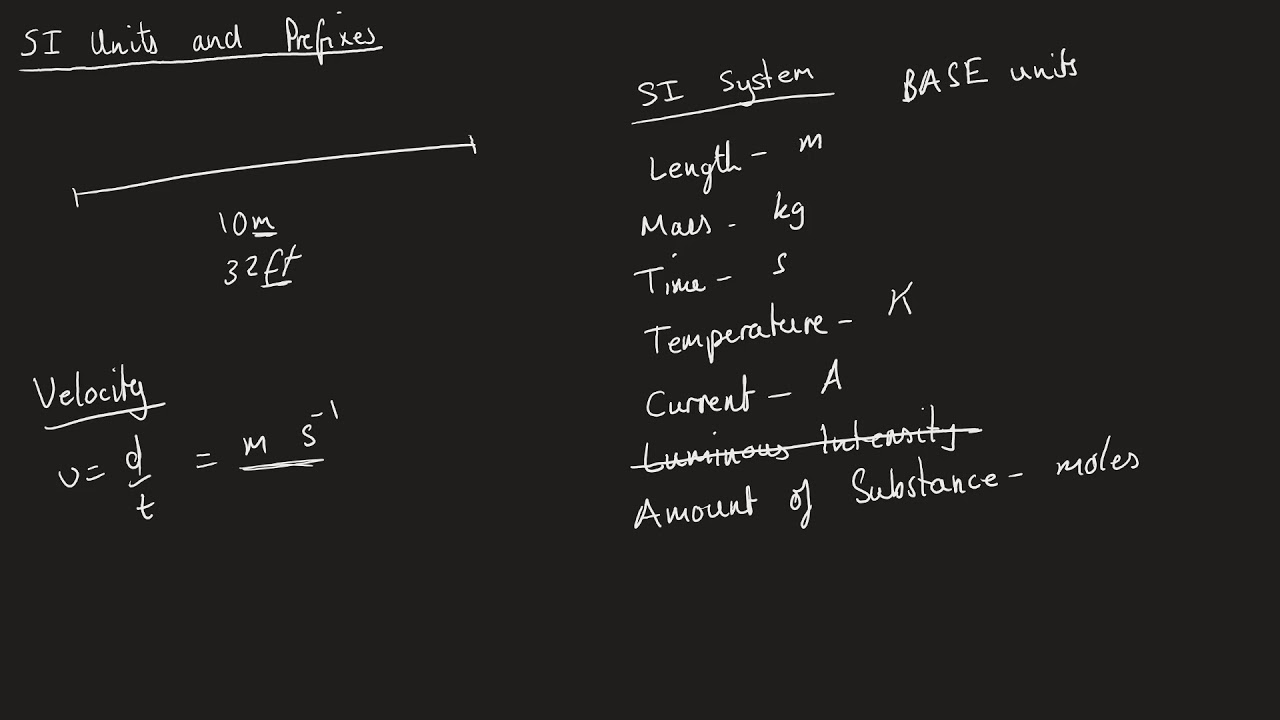 SI Units and Prefixes
10m
32ft
Velocity
v = d/t = m s⁻¹
SI System BASE units
Length - m
Mass - kg
Time - s
Temperature - K
Current - A
Luminous Intensity
Amount of Substance - moles